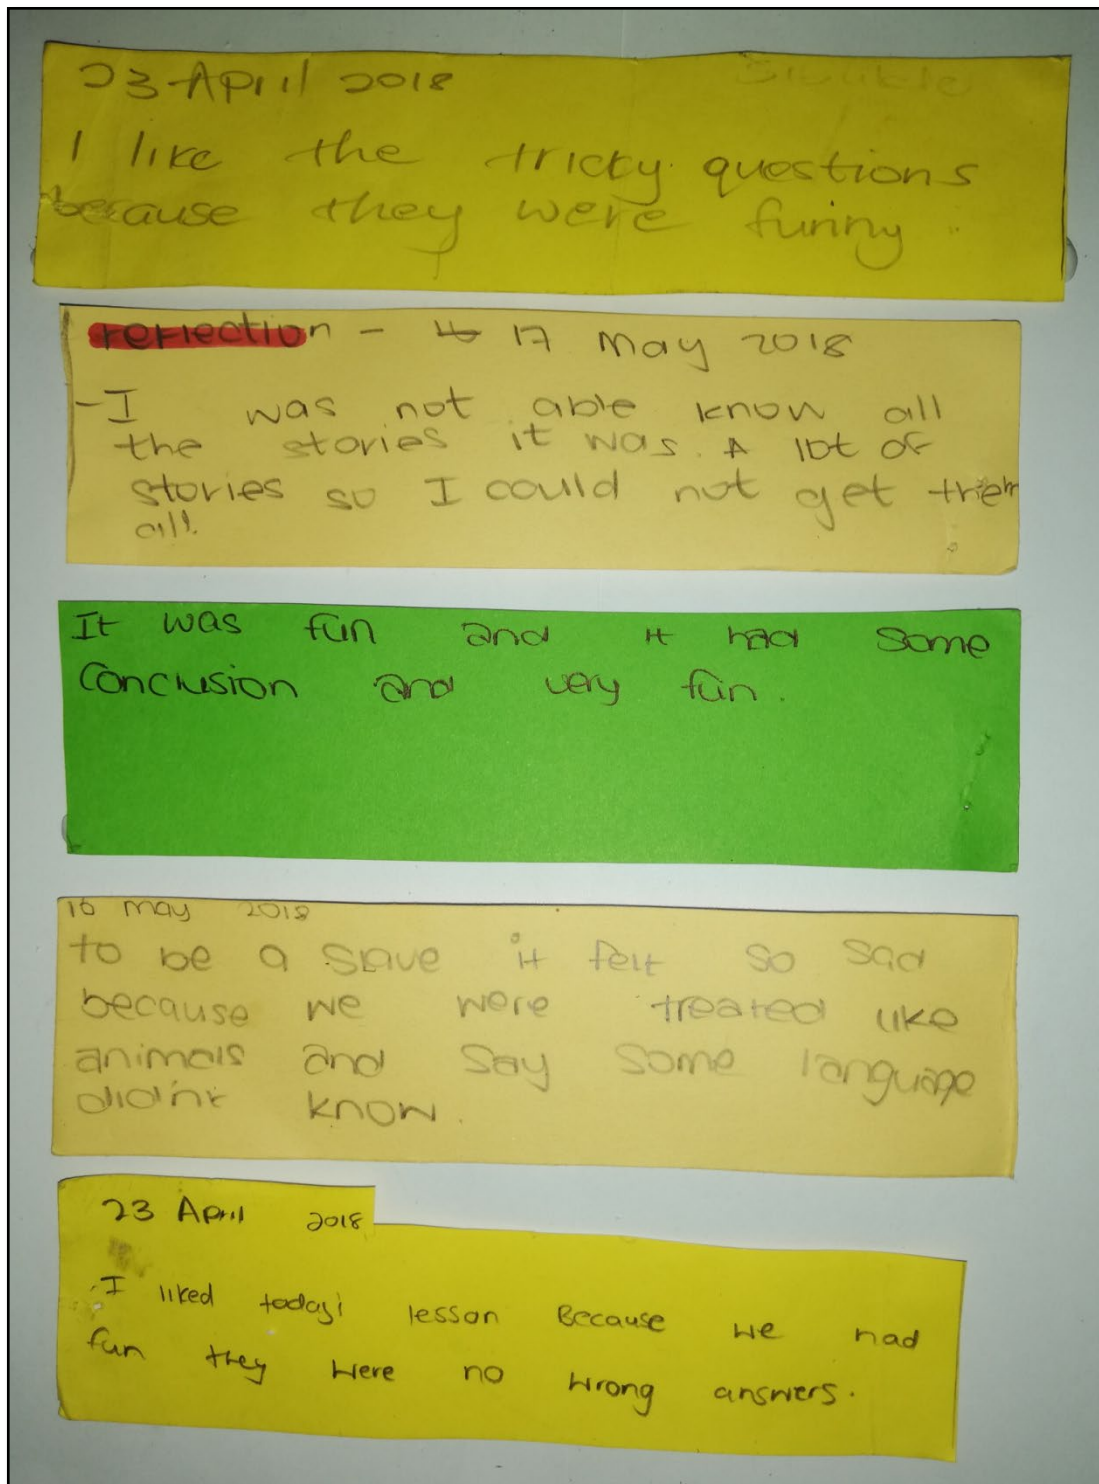 23 April 2018
I like the tricky questions
because they were funny.
reflection - 17 May 2018
- I was not able know all
the stories it was. A lot of
stories so I could not get them
all.
It was fun and it had some
Conclusion and very fun.
16 may 2018
to be a slave it felt so sad
because we were treated like
animals and say some language
didint know.
23 April 2018
I liked todays lesson Because we had
fun they were no wrong answers.